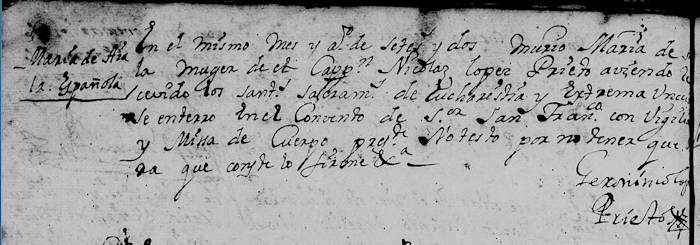 Maria de Aia
la Española
En el mismo mes y año de setta y dos murio Maria de
la Muger de el Cappn Nicolaz lopez Prieto aviendo
cevido los Santos Sacramtos de Euchristia y Extrema Unci
se enterro En el Convento de Sor San Franco con Vigilia
y Missa de Cuerpo preste No testo por no tener que
ra que conste lo firme &a
Geronimo lop
Prieto